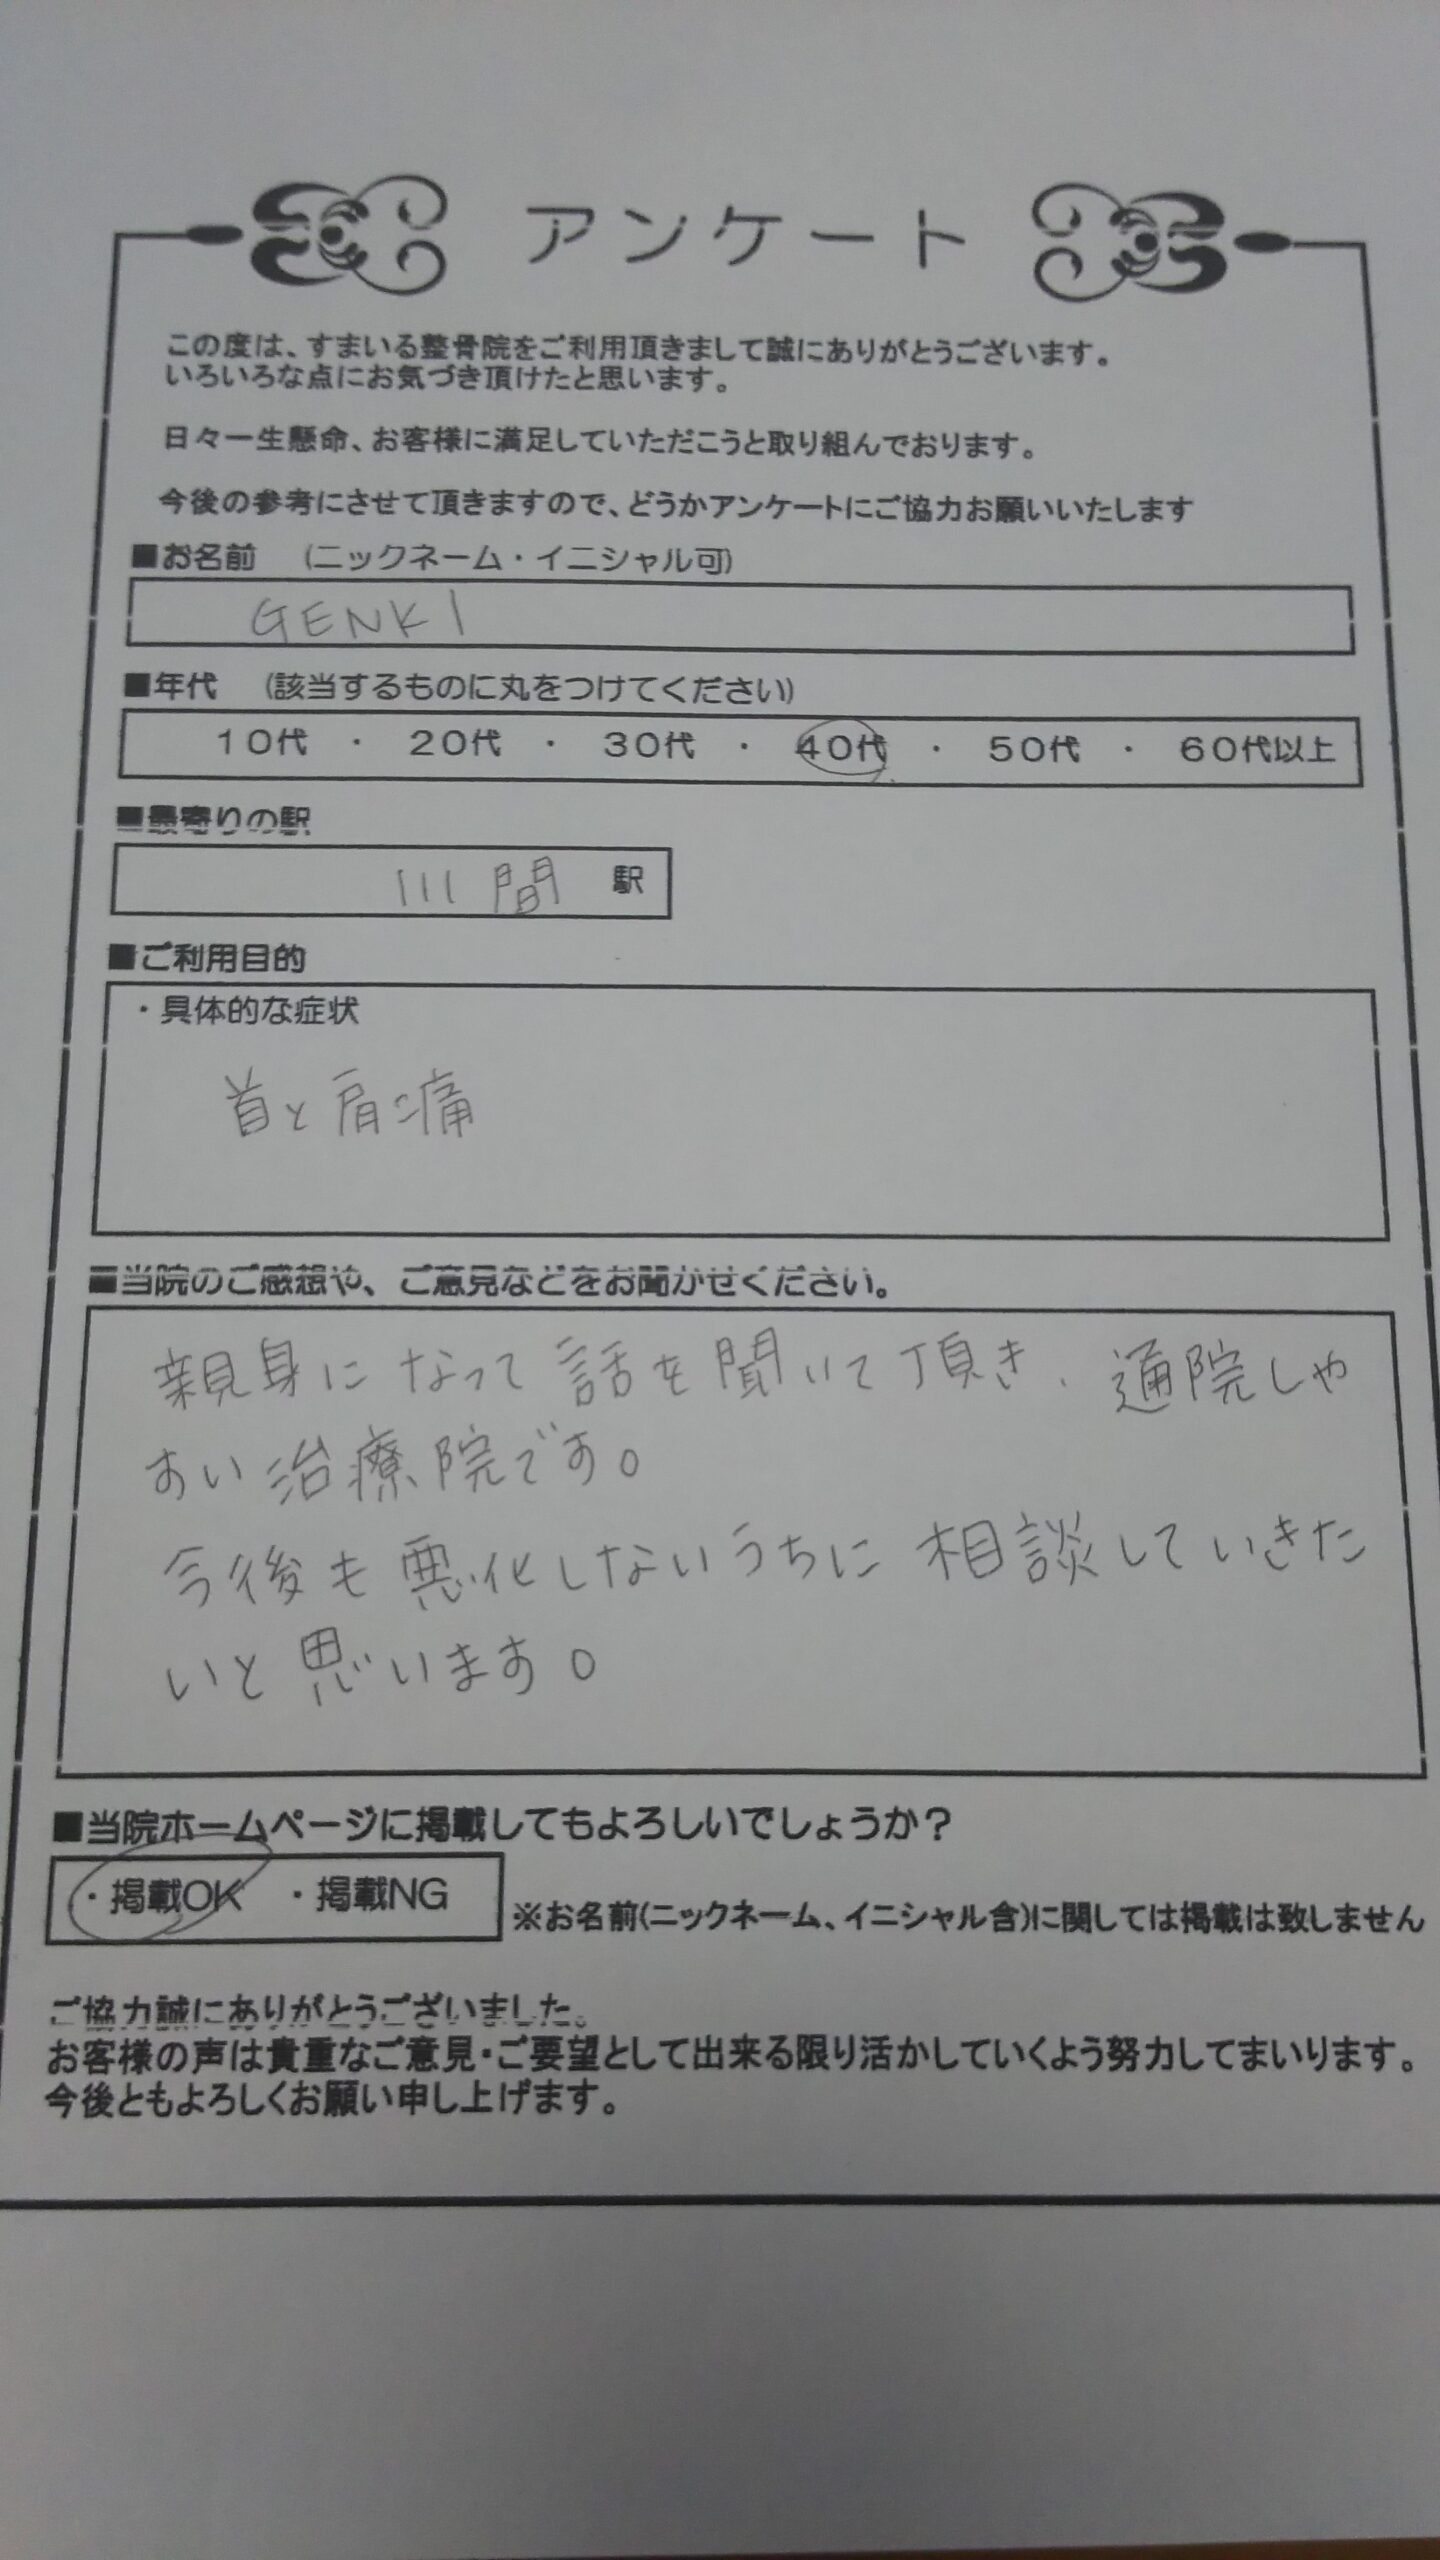 アンケート
この度は、すまいる整骨院をご利用頂きまして誠にありがとうございます。
いろいろな点にお気づき頂けたと思います。
日々一生懸命、お客様に満足していただこうと取り組んでおります。
今後の参考にさせて頂きますので、どうかアンケートにご協力お願いいたします
■お名前　(ニックネーム・イニシャル可)
GENKI
■年代　(該当するものに丸をつけてください)
10代 ・ 20代 ・ 30代 ・ 40代 ・ 50代 ・ 60代以上
■最寄りの駅
川間 駅
■ご利用目的
・具体的な症状
首と肩痛
■当院のご感想や、ご意見などをお聞かせください。
親身になって話を聞いて頂き、通院しや
すい治療院です。
今後も悪化しないうちに相談していきた
いと思います。
■当院ホームページに掲載してもよろしいでしょうか？
・掲載OK ・掲載NG
※お名前(ニックネーム、イニシャル含)に関しては掲載は致しません
ご協力誠にありがとうございました。
お客様の声は貴重なご意見・ご要望として出来る限り活かしていくよう努力してまいります。
今後ともよろしくお願い申し上げます。